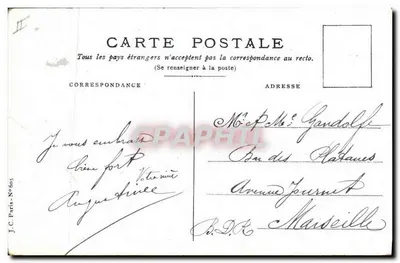 II
CARTE POSTALE
Tous les pays étrangers n'acceptent pas la correspondance au recto.
(Se renseigner à la poste)
CORRESPONDANCE
ADRESSE
Je vous embrasse
bien fort
Augustine
Mr & Me Gandolfe
des Platanes
Avenue Journet
B.D.R
Marseille
J. C. Paris
PHIL